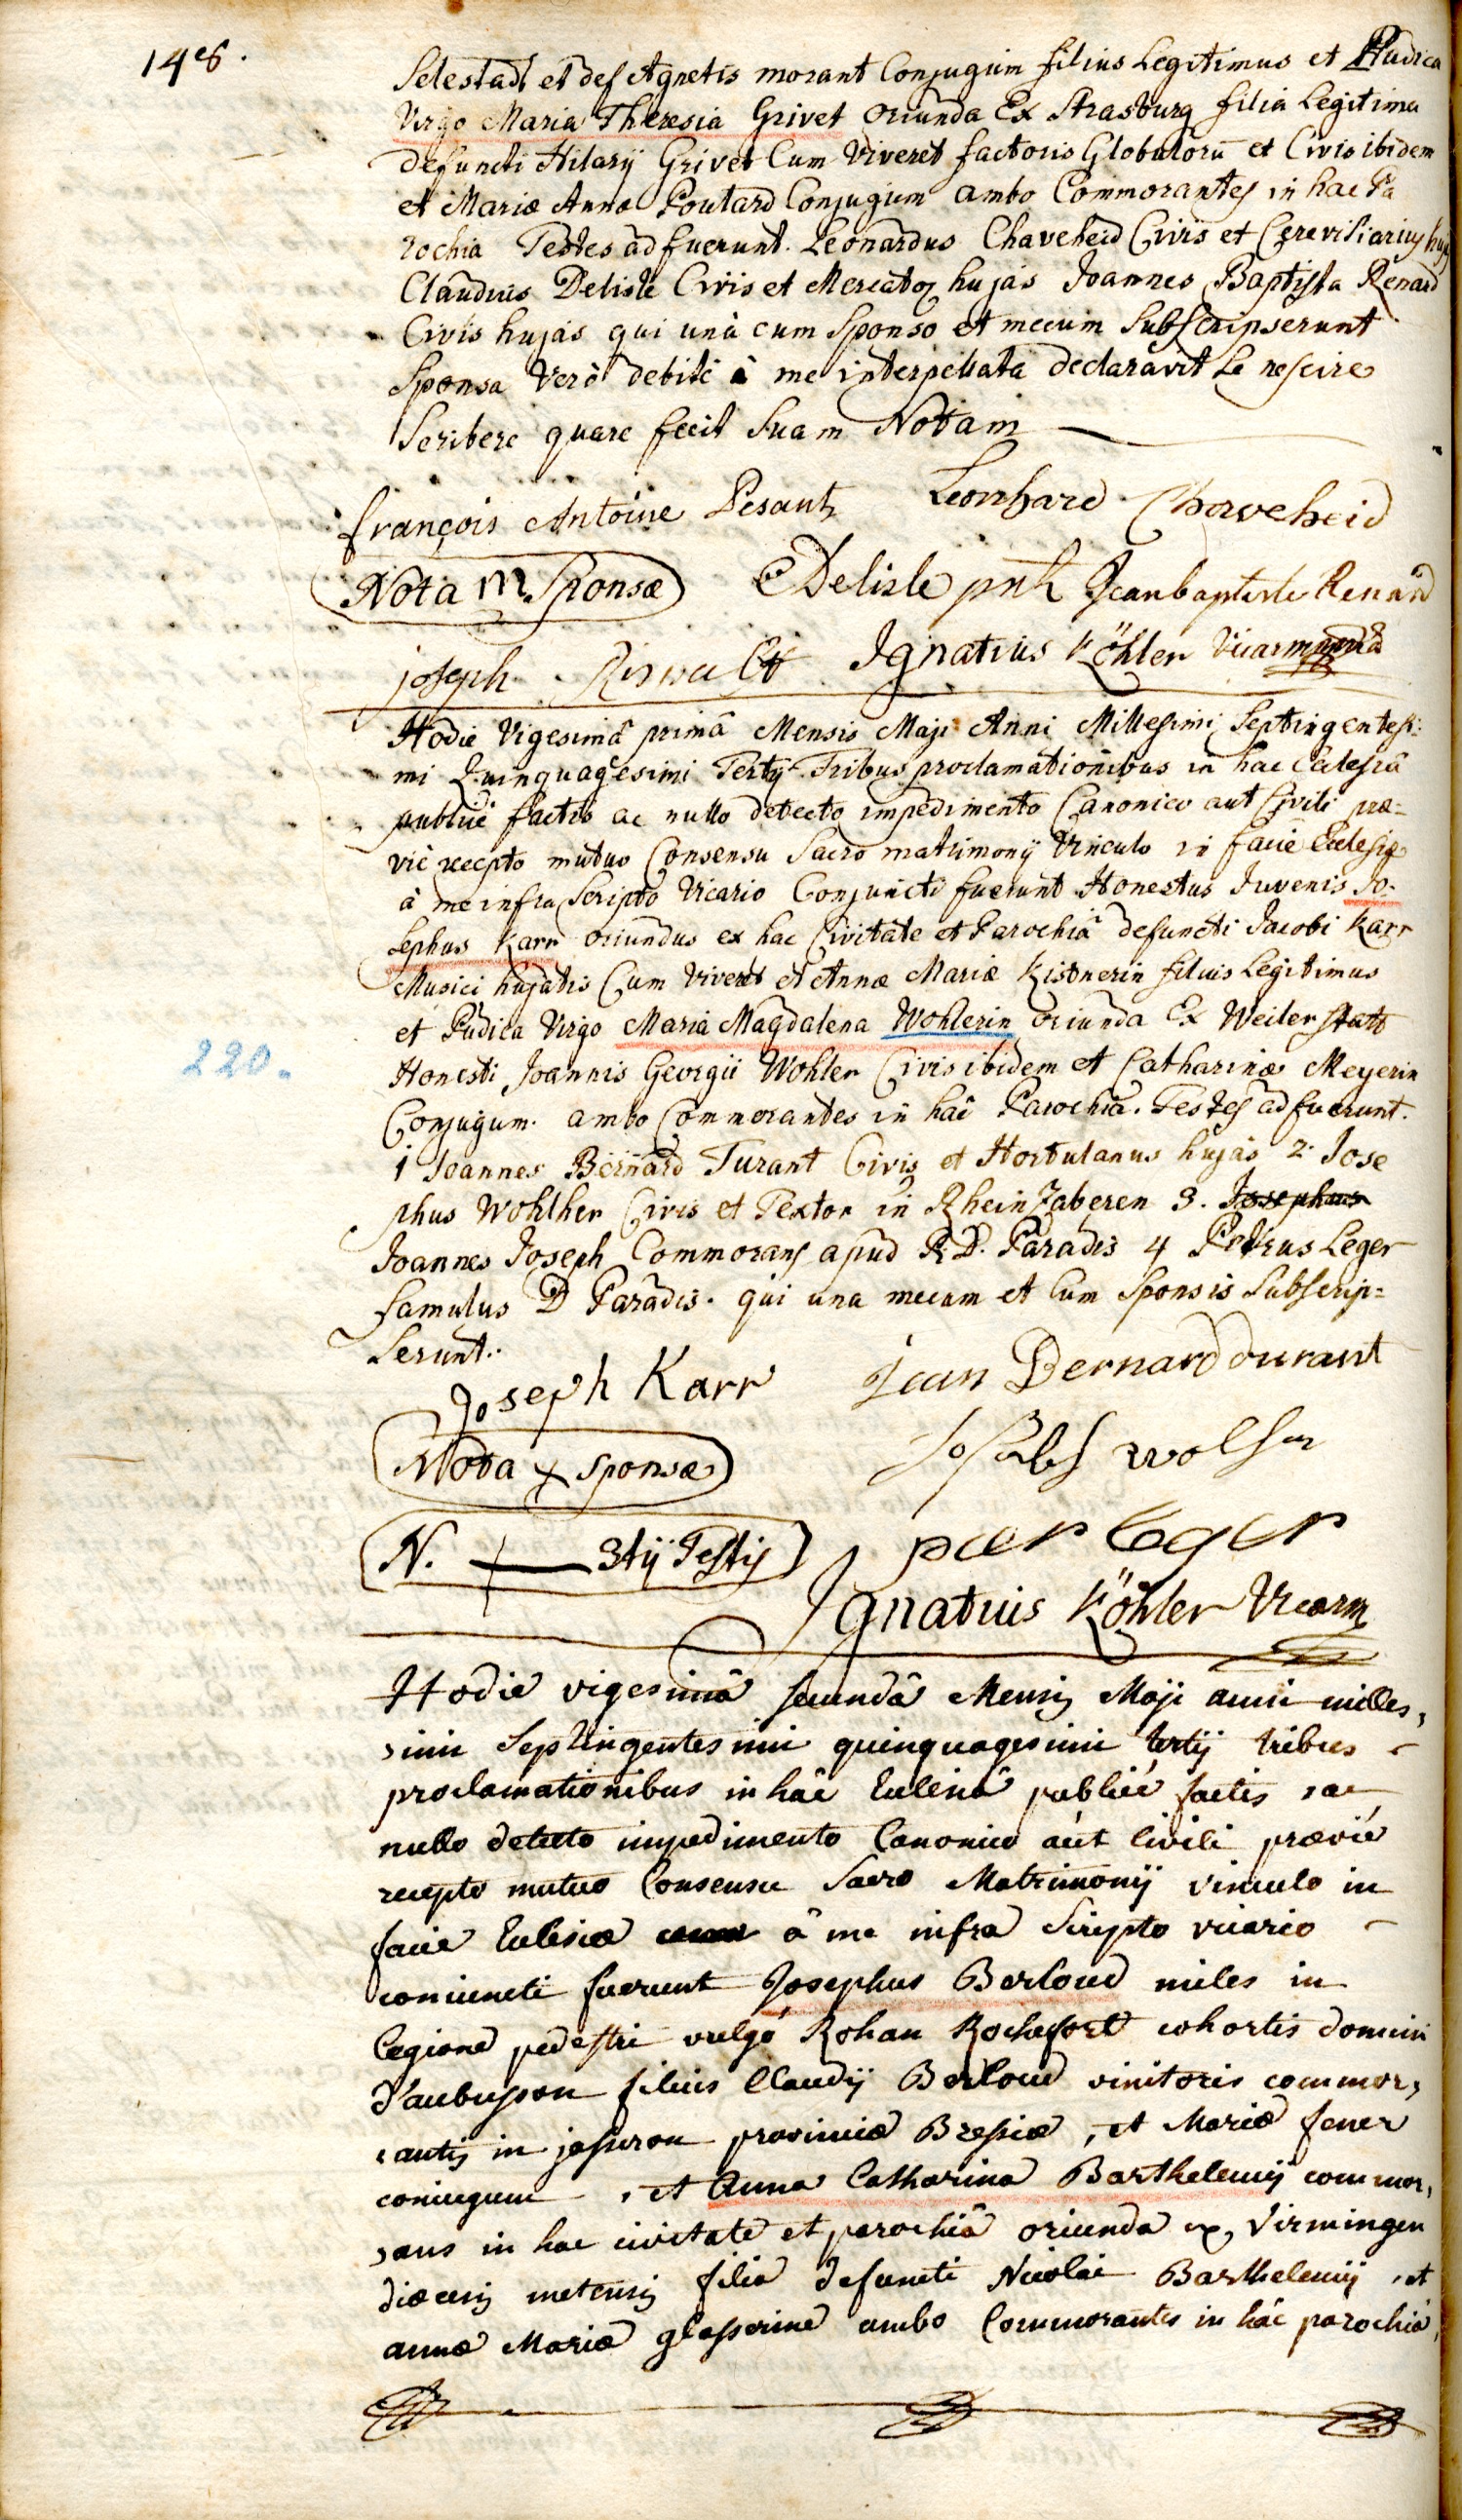 148.
Selestadt et def Agnetis morant Conjugum filius Legitimus et Pudica
Virgo Maria Theresia Grivet oriunda Ex Strasburg filia Legitima
defuncti Hilarij Grivet Cum Viveret factoris Globulorū et Civis ibidem
et Mariæ Annæ Poutard Conjugum ambo Commorantes in hac Pa
rochia Testes ad fuerunt. Leonardus Chaveheid Civis et Cerevisiarius hujas
Claudius Delisle Civis et Mercator hujas Joannes Baptista Renard
Civis hujas qui unà cum Sponso et mecum Subscripserunt
Sponsa Verò debitè à me interpellata declaravit Se nescire
Scribere quare fecit Suam Notam
françois Antoine Pesant Leonhard Chaveheid
Nota m Sponsæ Delisle Jeanbaptiste Renard
joseph Ignatius Köhler Vicarm
Hodie Vigesimâ primâ Mensis Maji Anni Millesimi Septingentesi:
mi Quinquagesimi Tertij Tribus proclamationibus in hac Eclesiâ
publicè factis ac nullo detecto impedimento Canonico aut Civili præ=
viè recepto mutuo Consensu Sacro matrimonij Vinculo in facie Eclesiæ
à me infra Scripto Vicario Conjuncti fuerunt Honestus Juvenis Jo-
sephus Karr oriundus ex hac Civitate et Parochiâ defuncti Jacobi Karr
Musici hujatis Cum Viveret et Annæ Mariæ Kistnerin filius Legitimus
et Pudica Virgo Maria Magdalena Wohlerin oriunda Ex Weiler Statt
220.
Honesti Joannis Georgii Wohler Civis ibidem et Catharinæ Meyerin
Conjugum. ambo Commorantes in hâc Parochiâ. Testes ad fuerunt.
1 Joannes Bernard Turant Civis et Hortulanus hujas 2. Jose
phus Wohlher Civis et Textor in Rhein Zaberen 3. Josephus
Joannes Joseph Commorans apud R. D. Paradis 4 Petrus Leger
famulus D Paradis. qui una mecum et Cum Sponsis Subscrip=
serunt.
Joseph Karr Jean Bernard durant
Nota x Sponsæ Joseph wolher
N. + 3tij Testis pier leger
Ignatius Köhler Vicarm
Hodie vigesimâ secundâ Mensis Maji anni milles,
simi Septingentesimi quinquagesimi tertij tribus
proclamationibus in hâc Eclesiâ publicè factis ac
nullo detecto impedimento Canonico aút Civili præviè
recepto mutuo Consensu Sacro Matrimonij vinculo in
facie Eclesiæ à me infra Scripto vicario
coniuncti fuerunt Josephus Berloud miles in
legione pedestri vulgò Rohan Rochefort cohortis domini
d'aubusson filius Claudij Berloud vinitoris commor,
antis in jasseron provinciæ Bressiæ, et Mariæ fener
coniugum, et Anna Catharina Barthelemij commor,
ans in hac civitate et parochiâ oriunda ex Virmingen
diœcesis metensis filia defuncti Nicolai Barthelemij et
annæ Mariæ glasserine ambo Commorantes in hâc parochiâ,